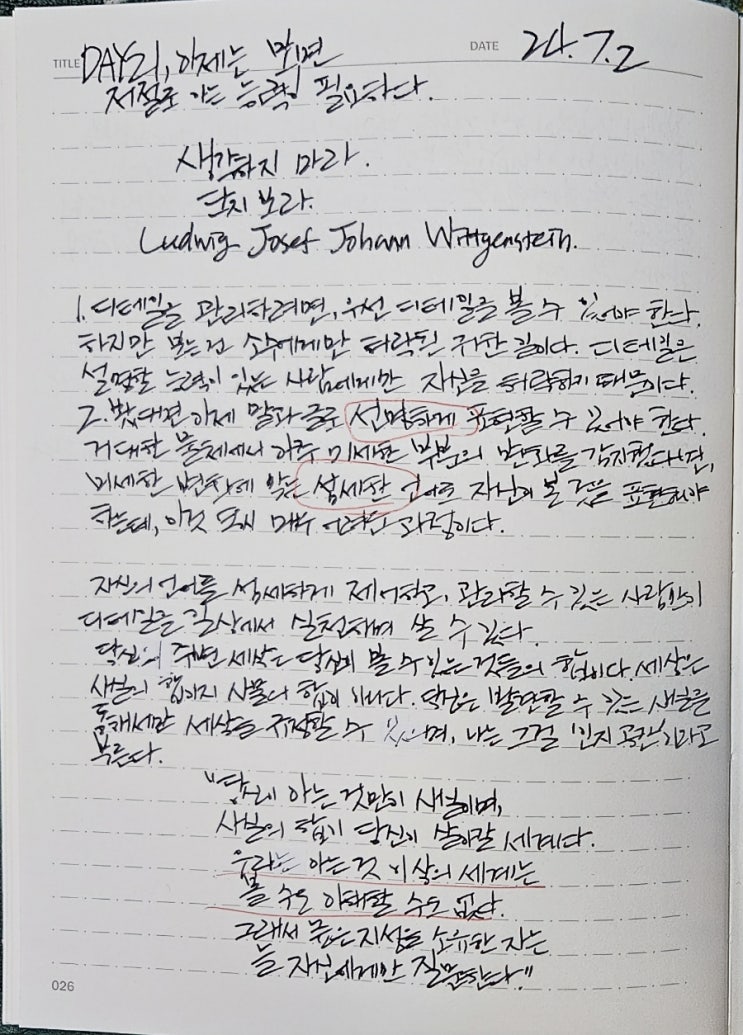 TITLE DAY21, 이제는 보면 DATE 24.7.2
저절로 아는 능력이 필요하다.
생각하지 마라.
단지 보라.
Ludwig Josef Johann Wittgenstein.
1. 디테일을 관리하려면, 우선 디테일을 볼 수 있어야 한다.
하지만 보는 건 소수에게만 허락된 귀한 일이다. 디테일은
설명할 능력이 있는 사람에게만 자신을 허락하기 때문이다.
2. 봤다면 이제 말과 글로 선명하게 표현할 수 있어야 한다.
거대한 물체에서 아주 미세한 부분의 변화를 감지했다면,
미세한 변화에 맞는 섬세한 언어로 자신이 본 것을 표현해야
하는데, 이것 또한 매우 어려운 과정이다.
자신의 언어를 섬세하게 제어하고, 관리할 수 있는 사람만이
디테일을 일상에서 실천하며 살 수 있다.
당신의 주변 세상은 당신이 볼 수 있는 것들의 합이다. 세상은
사실의 합이지 사물의 합이 아니다. 당신은 발견할 수 있는 사실을
통해서만 세상을 구성할 수 있으며, 나는 그걸 '인지 공간'이라고
부른다.
"당신이 아는 것만이 사실이며,
사실의 합이 당신이 살아갈 세계다.
우리는 아는 것 이상의 세계는
볼 수도 이해할 수도 없다.
그래서 높은 지성을 소유한 자는
늘 자신에게만 질문한다."
026